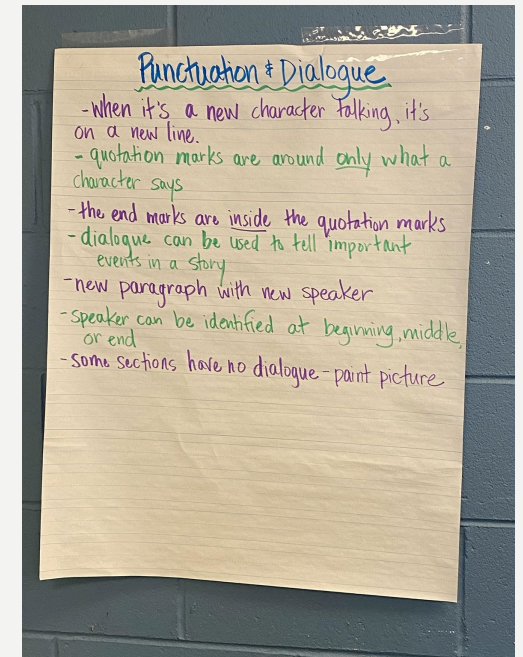 Punctuation & Dialogue
-when it's a new character talking, it's
on a new line.
- quotation marks are around only what a
character says
-the end marks are inside the quotation marks
-dialogue can be used to tell important
events in a story
-new paragraph with new speaker
-speaker can be identified at beginning, middle,
or end
-some sections have no dialogue-paint picture